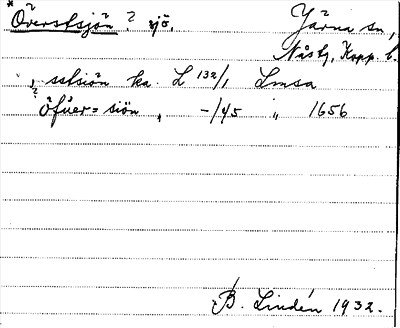 * Överstsjön? sjö, Järna sn,
Näsby, Kopp. l.
", sstsiön ka. L 132/1 Lmsa
? öfuer=siön, -/45 " 1656
B. Lindén 1932.